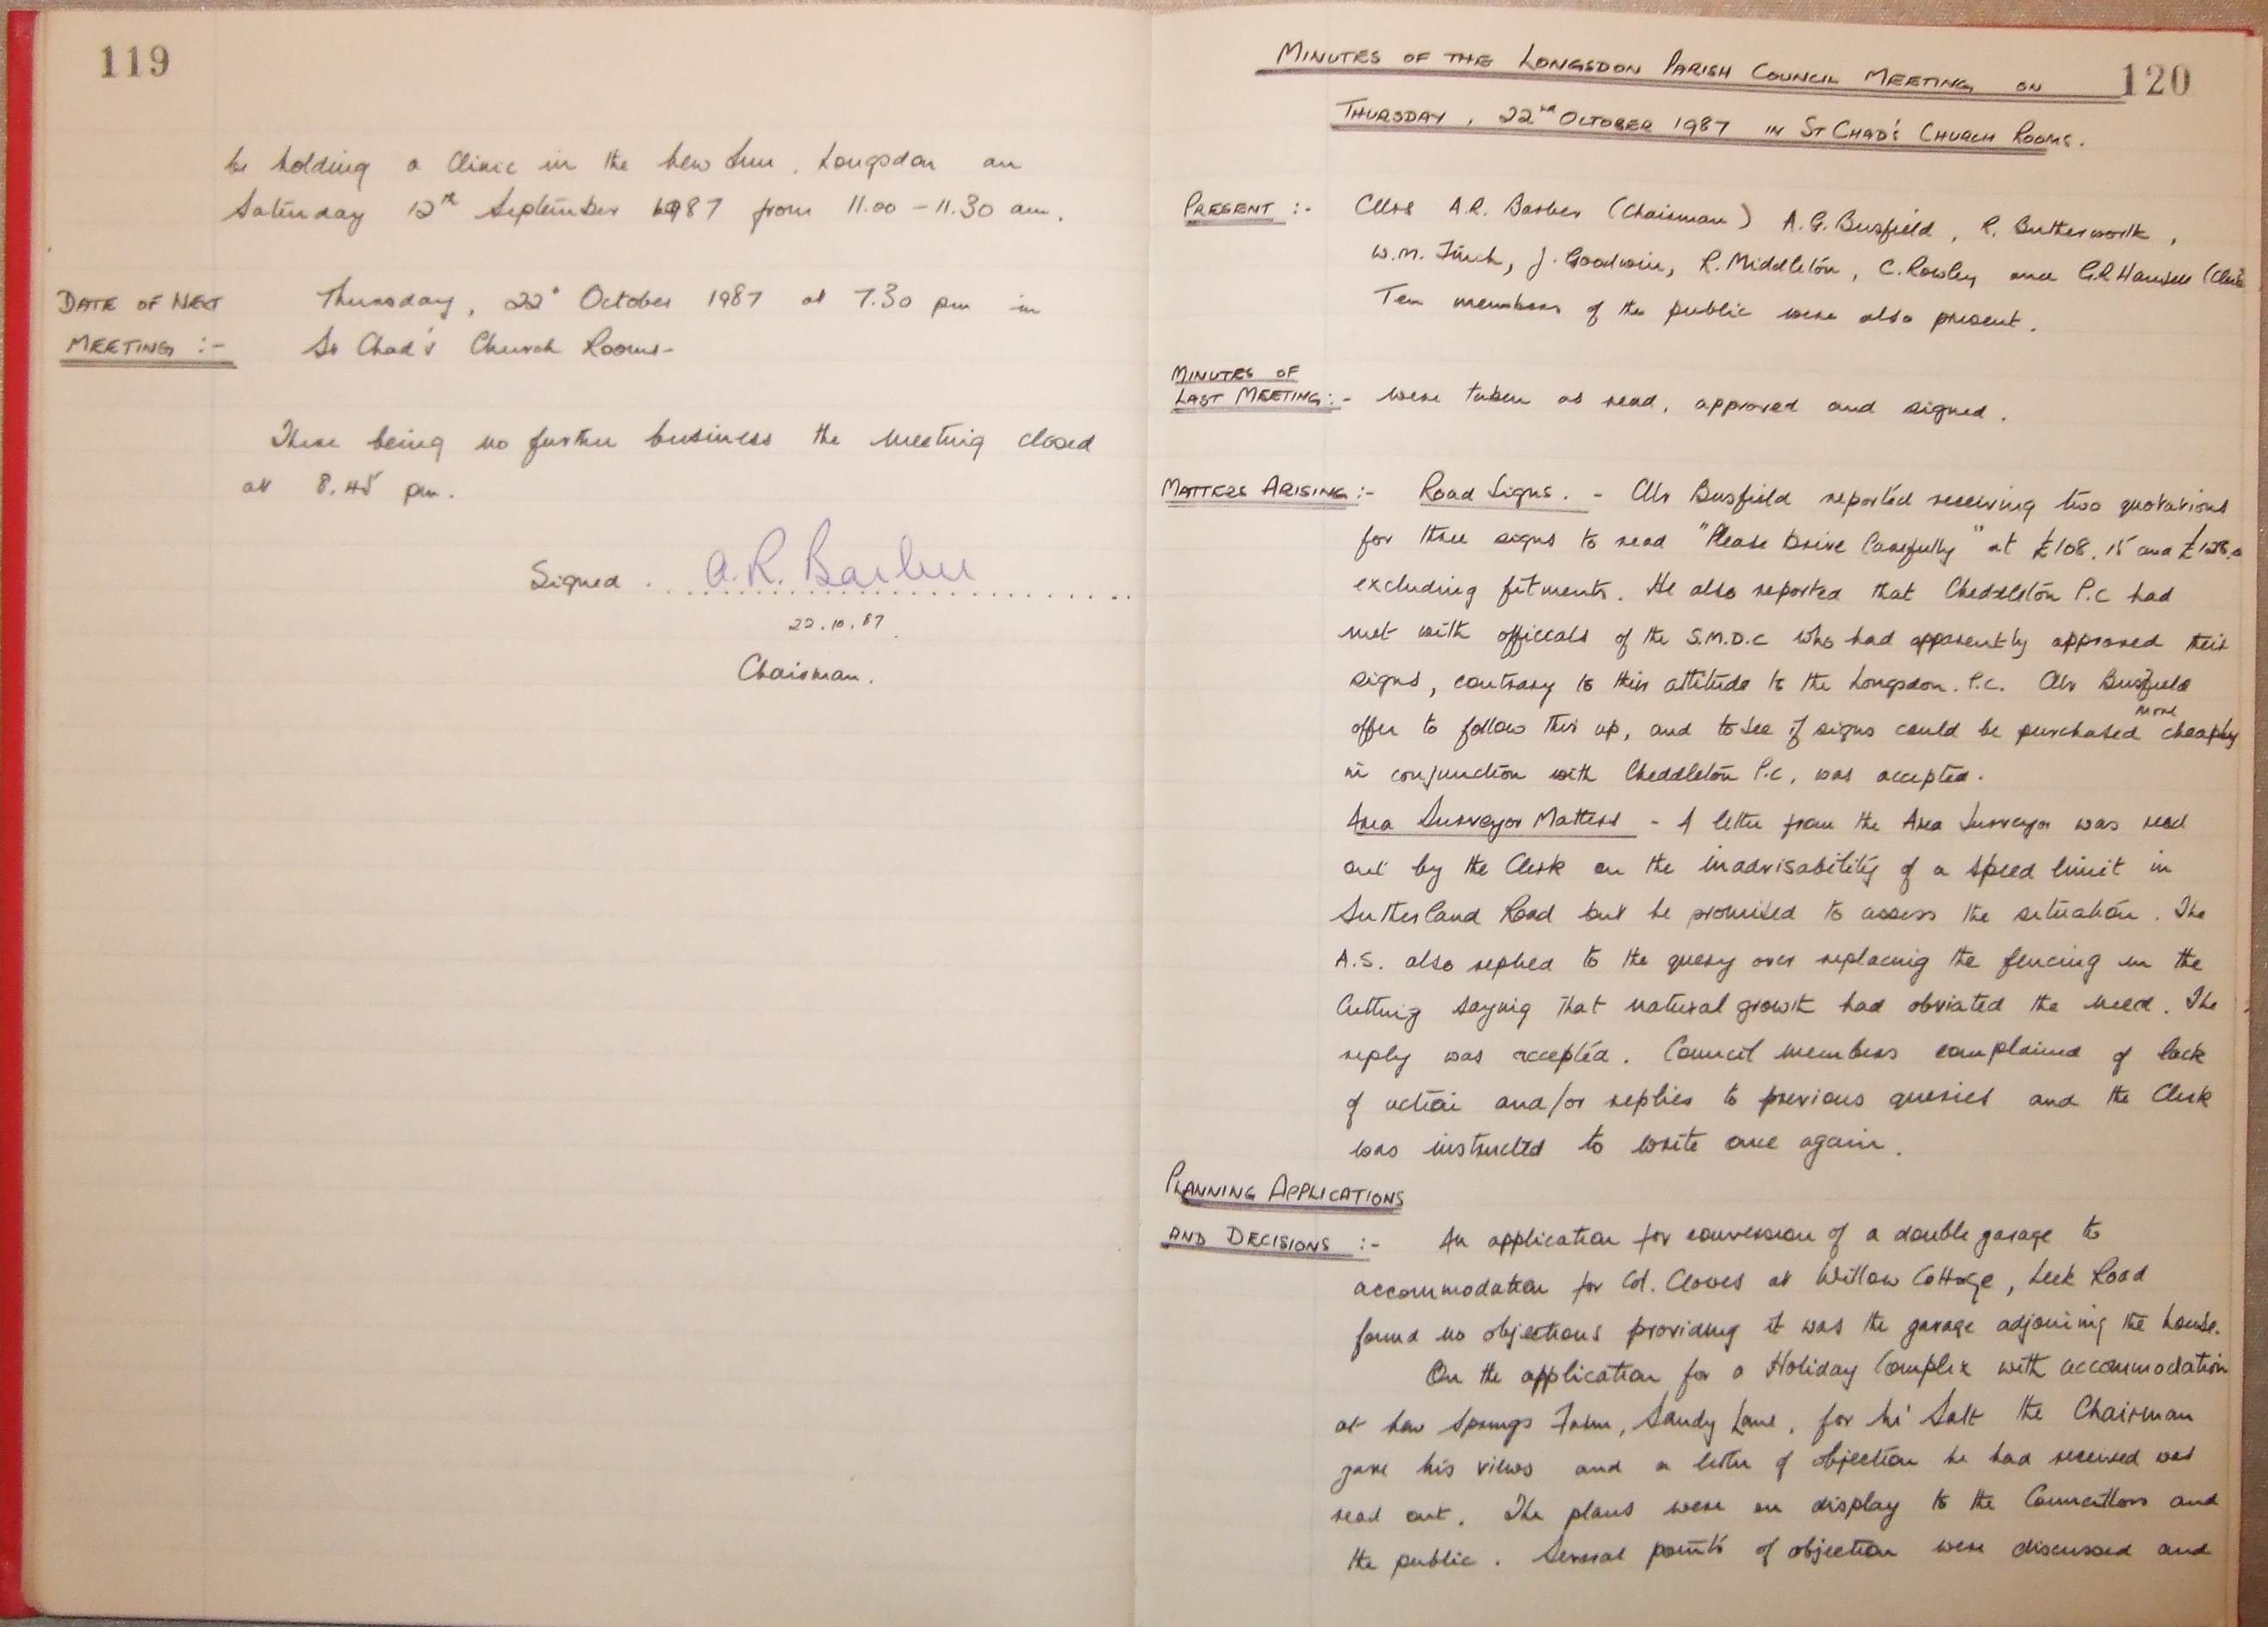 119
be holding a Clinic in the New Inn, Longsdon on
Saturday 12th September 1987 from 11.00 - 11.30 am.
DATE OF NEXT Thursday, 22nd October 1987 at 7.30 pm in
MEETING :- St Chad's Church Rooms-
There being no further business the meeting closed
at 8.45 pm.
Signed . A.R. Barber
22.10.87
Chairman.
120
MINUTES OF THE LONGSDON PARISH COUNCIL MEETING ON
THURSDAY, 22nd OCTOBER 1987 IN ST CHAD'S CHURCH ROOMS.
PRESENT :- Cllrs A.R. Barber (Chairman) A.G. Busfield, R. Butterworth,
W.M. Finch, J. Goodwin, R. Middleton, C. Rowley and G.R.
Ten members of the public were also present.
MINUTES OF
LAST MEETING :- were taken as read, approved and signed.
MATTERS ARISING :- Road Signs. - Cllr Busfield reported receiving two quotations
for three signs to read "Please Drive Carefully" at £108.15 and
excluding fitments. He also reported that Cheddleton P.C had
met with officials of the S.M.D.C who had apparently approved their
signs, contrary to their attitude to the Longsdon. P.C. Cllr Busfield
offer to follow this up, and to see if signs could be purchased more cheaply
in conjunction with Cheddleton P.C, was accepted.
Area Surveyor Matters - A letter from the Area Surveyor was read
out by the Clerk on the inadvisability of a speed limit in
Sutherland Road but he promised to assess the situation. The
A.S. also replied to the query over replacing the fencing in the
Cutting saying that natural growth had obviated the need. The
reply was accepted. Council members complained of lack
of action and/or replies to previous queries and the Clerk
was instructed to write once again.
PLANNING APPLICATIONS
AND DECISIONS :- An application for conversion of a double garage to
accommodation for Col. Cloves at Willow Cottage, Leek Road
found no objections providing it was the garage adjoining the house.
On the application for a Holiday Complex with accommodation
at Springs Farm, Sandy Lane, for Mr Salt the Chairman
gave his views and a letter of objection he had received was
read out. The plans were on display to the Councillors and
the public. Several points of objection were discussed and